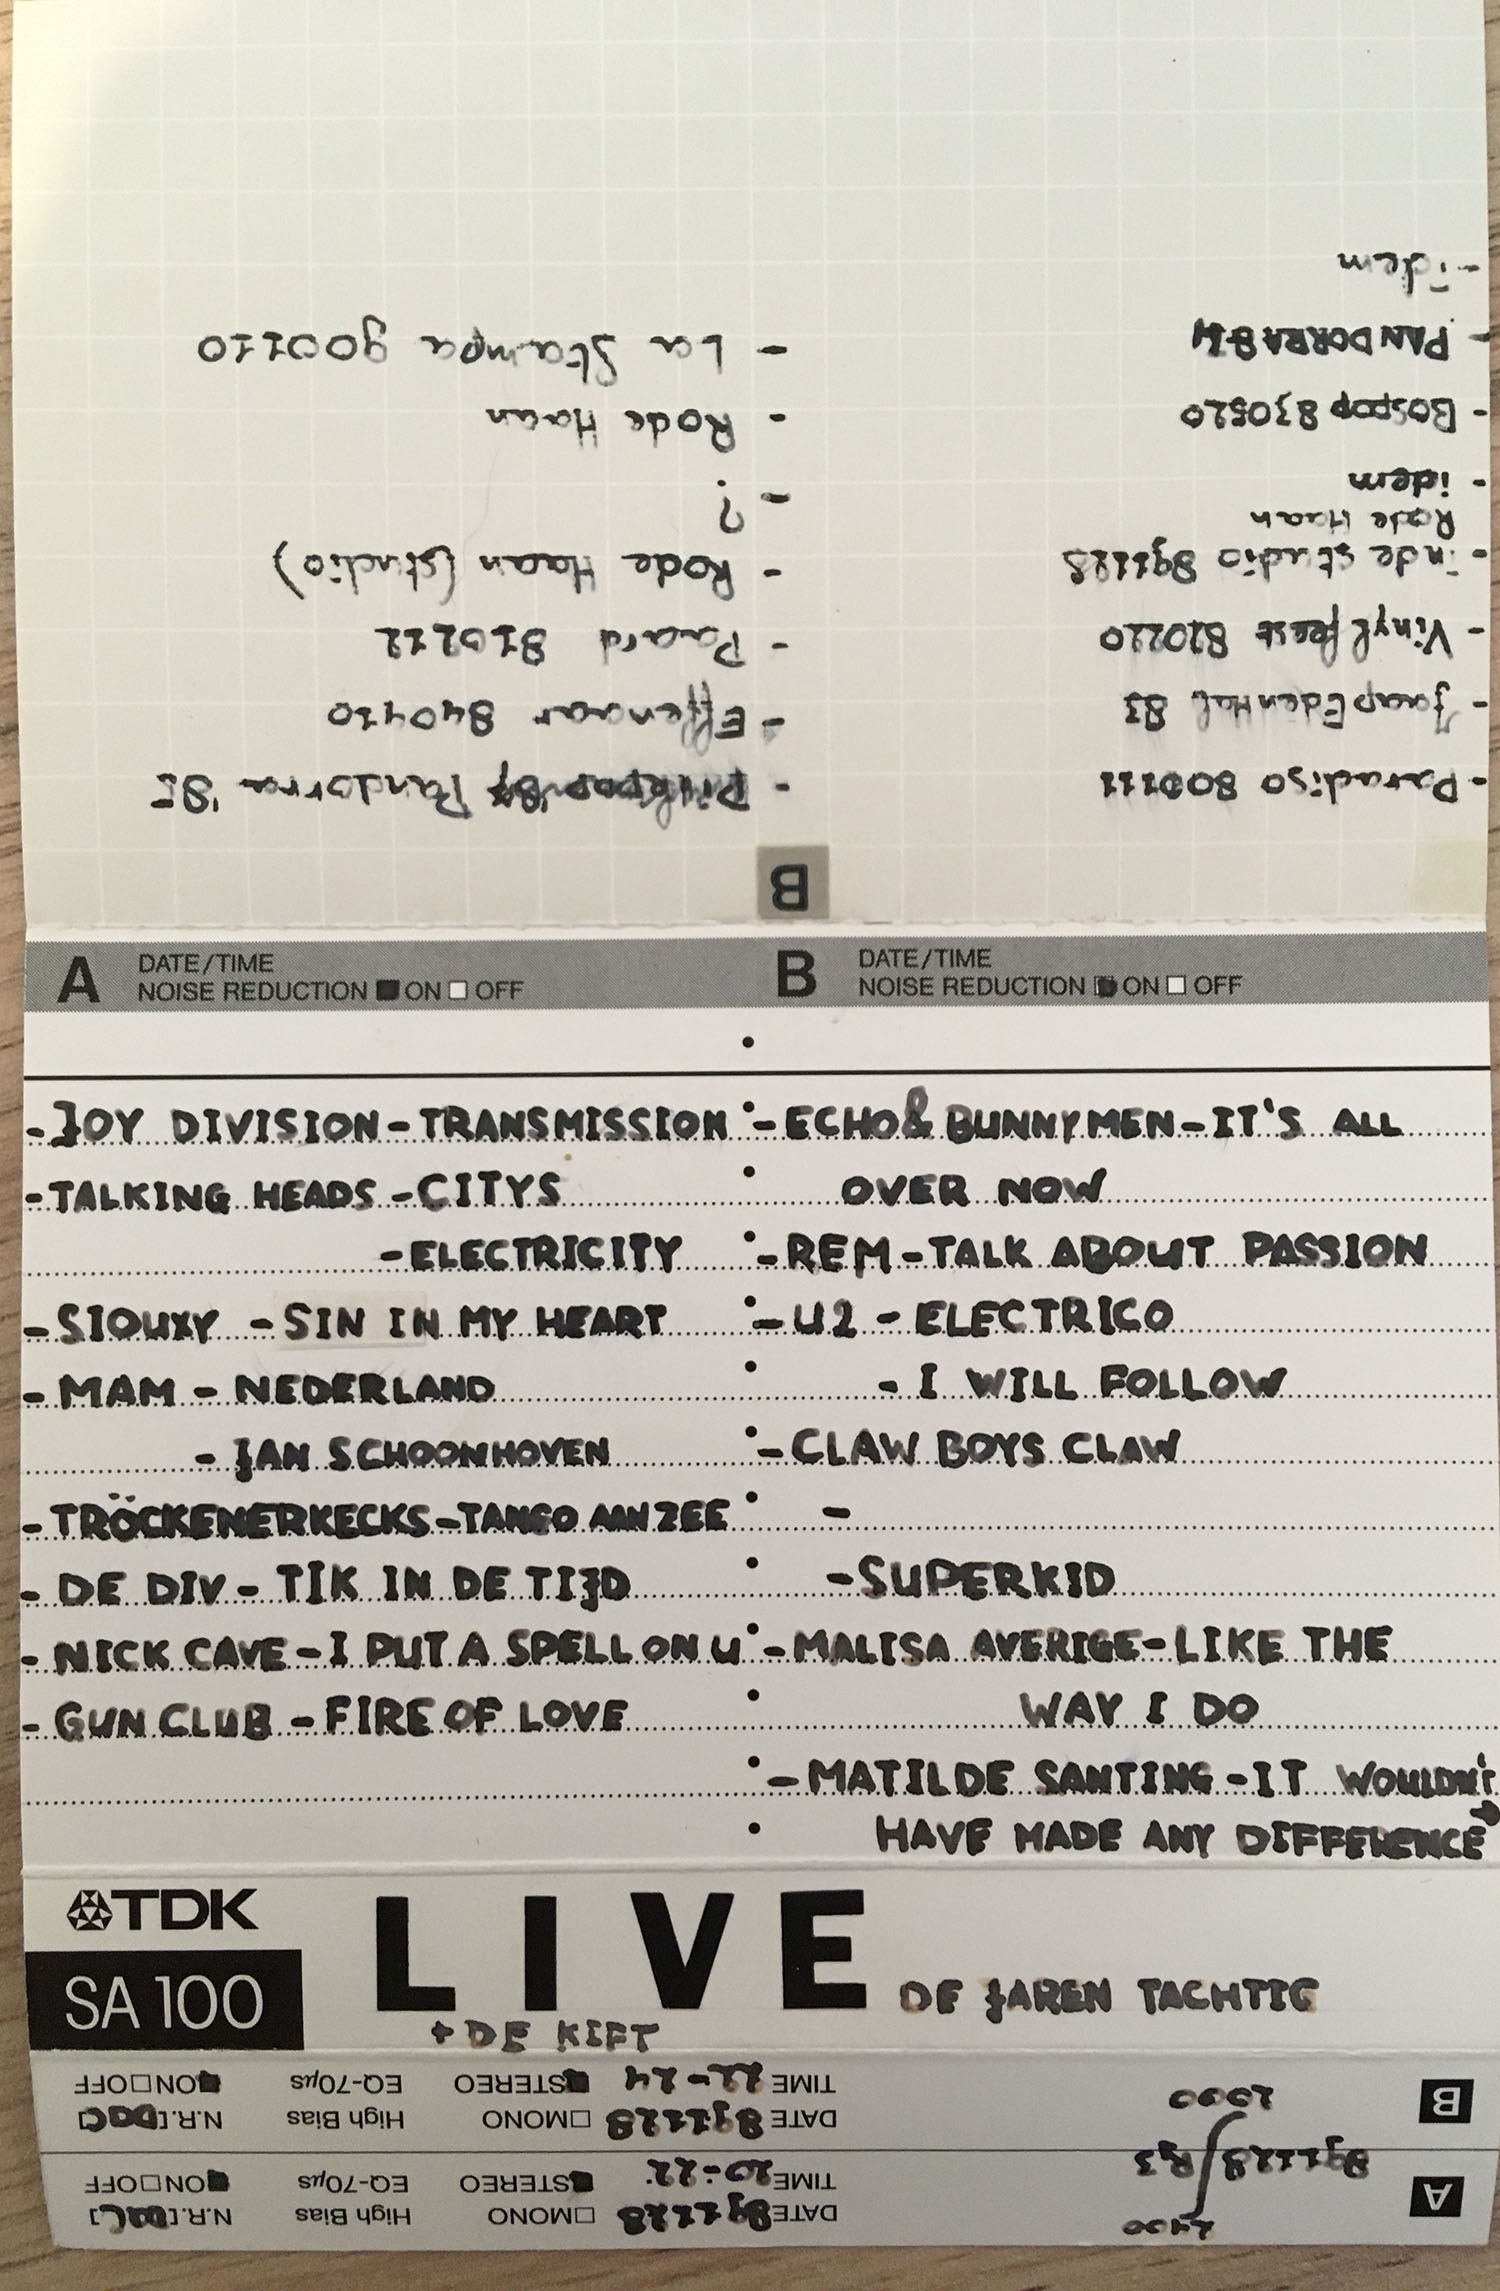 - Paradiso 800111
- Jaap Eden Hal 83
- Vinyl feest 820220
- in de studio 891128
Rode Haan
- idem
- Bospop 830520
- PANDORRA 84
- idem
B
- Pandorra '85
- Effenaar 840410
- Paard 810212
- Rode Haan (studio)
- ?
- Rode Haan
- La Stampa 900110
A DATE/TIME
NOISE REDUCTION ON OFF
- JOY DIVISION - TRANSMISSION
- TALKING HEADS - CITYS
- ELECTRICITY
- SIOUXY - SIN IN MY HEART
- MAM - NEDERLAND
- JAN SCHOONHOVEN
- TRÖCKENERKECKS - TANGO AAN ZEE
- DE DIV - TIK IN DE TIJD
- NICK CAVE - I PUT A SPELL ON U
- GUN CLUB - FIRE OF LOVE
B DATE/TIME
NOISE REDUCTION ON OFF
- ECHO & BUNNYMEN - IT'S ALL
OVER NOW
- REM - TALK ABOUT PASSION
- U2 - ELECTRICO
- I WILL FOLLOW
- CLAW BOYS CLAW
-
- SUPERKID
- MALISA AVERIGE - LIKE THE
WAY I DO
- MATILDE SANTING - IT WOULDN'T
HAVE MADE ANY DIFFERENCE
TDK
SA 100
LIVE DE JAREN TACHTIG
+ DE KIFT
A
2400
891128 R3
2000
DATE 891128 MONO High Bias N.R.[ ]
TIME 20-22 STEREO EQ-70µs ON OFF
B
DATE 891128 MONO High Bias N.R.[ ]
TIME 22-24 STEREO EQ-70µs ON OFF